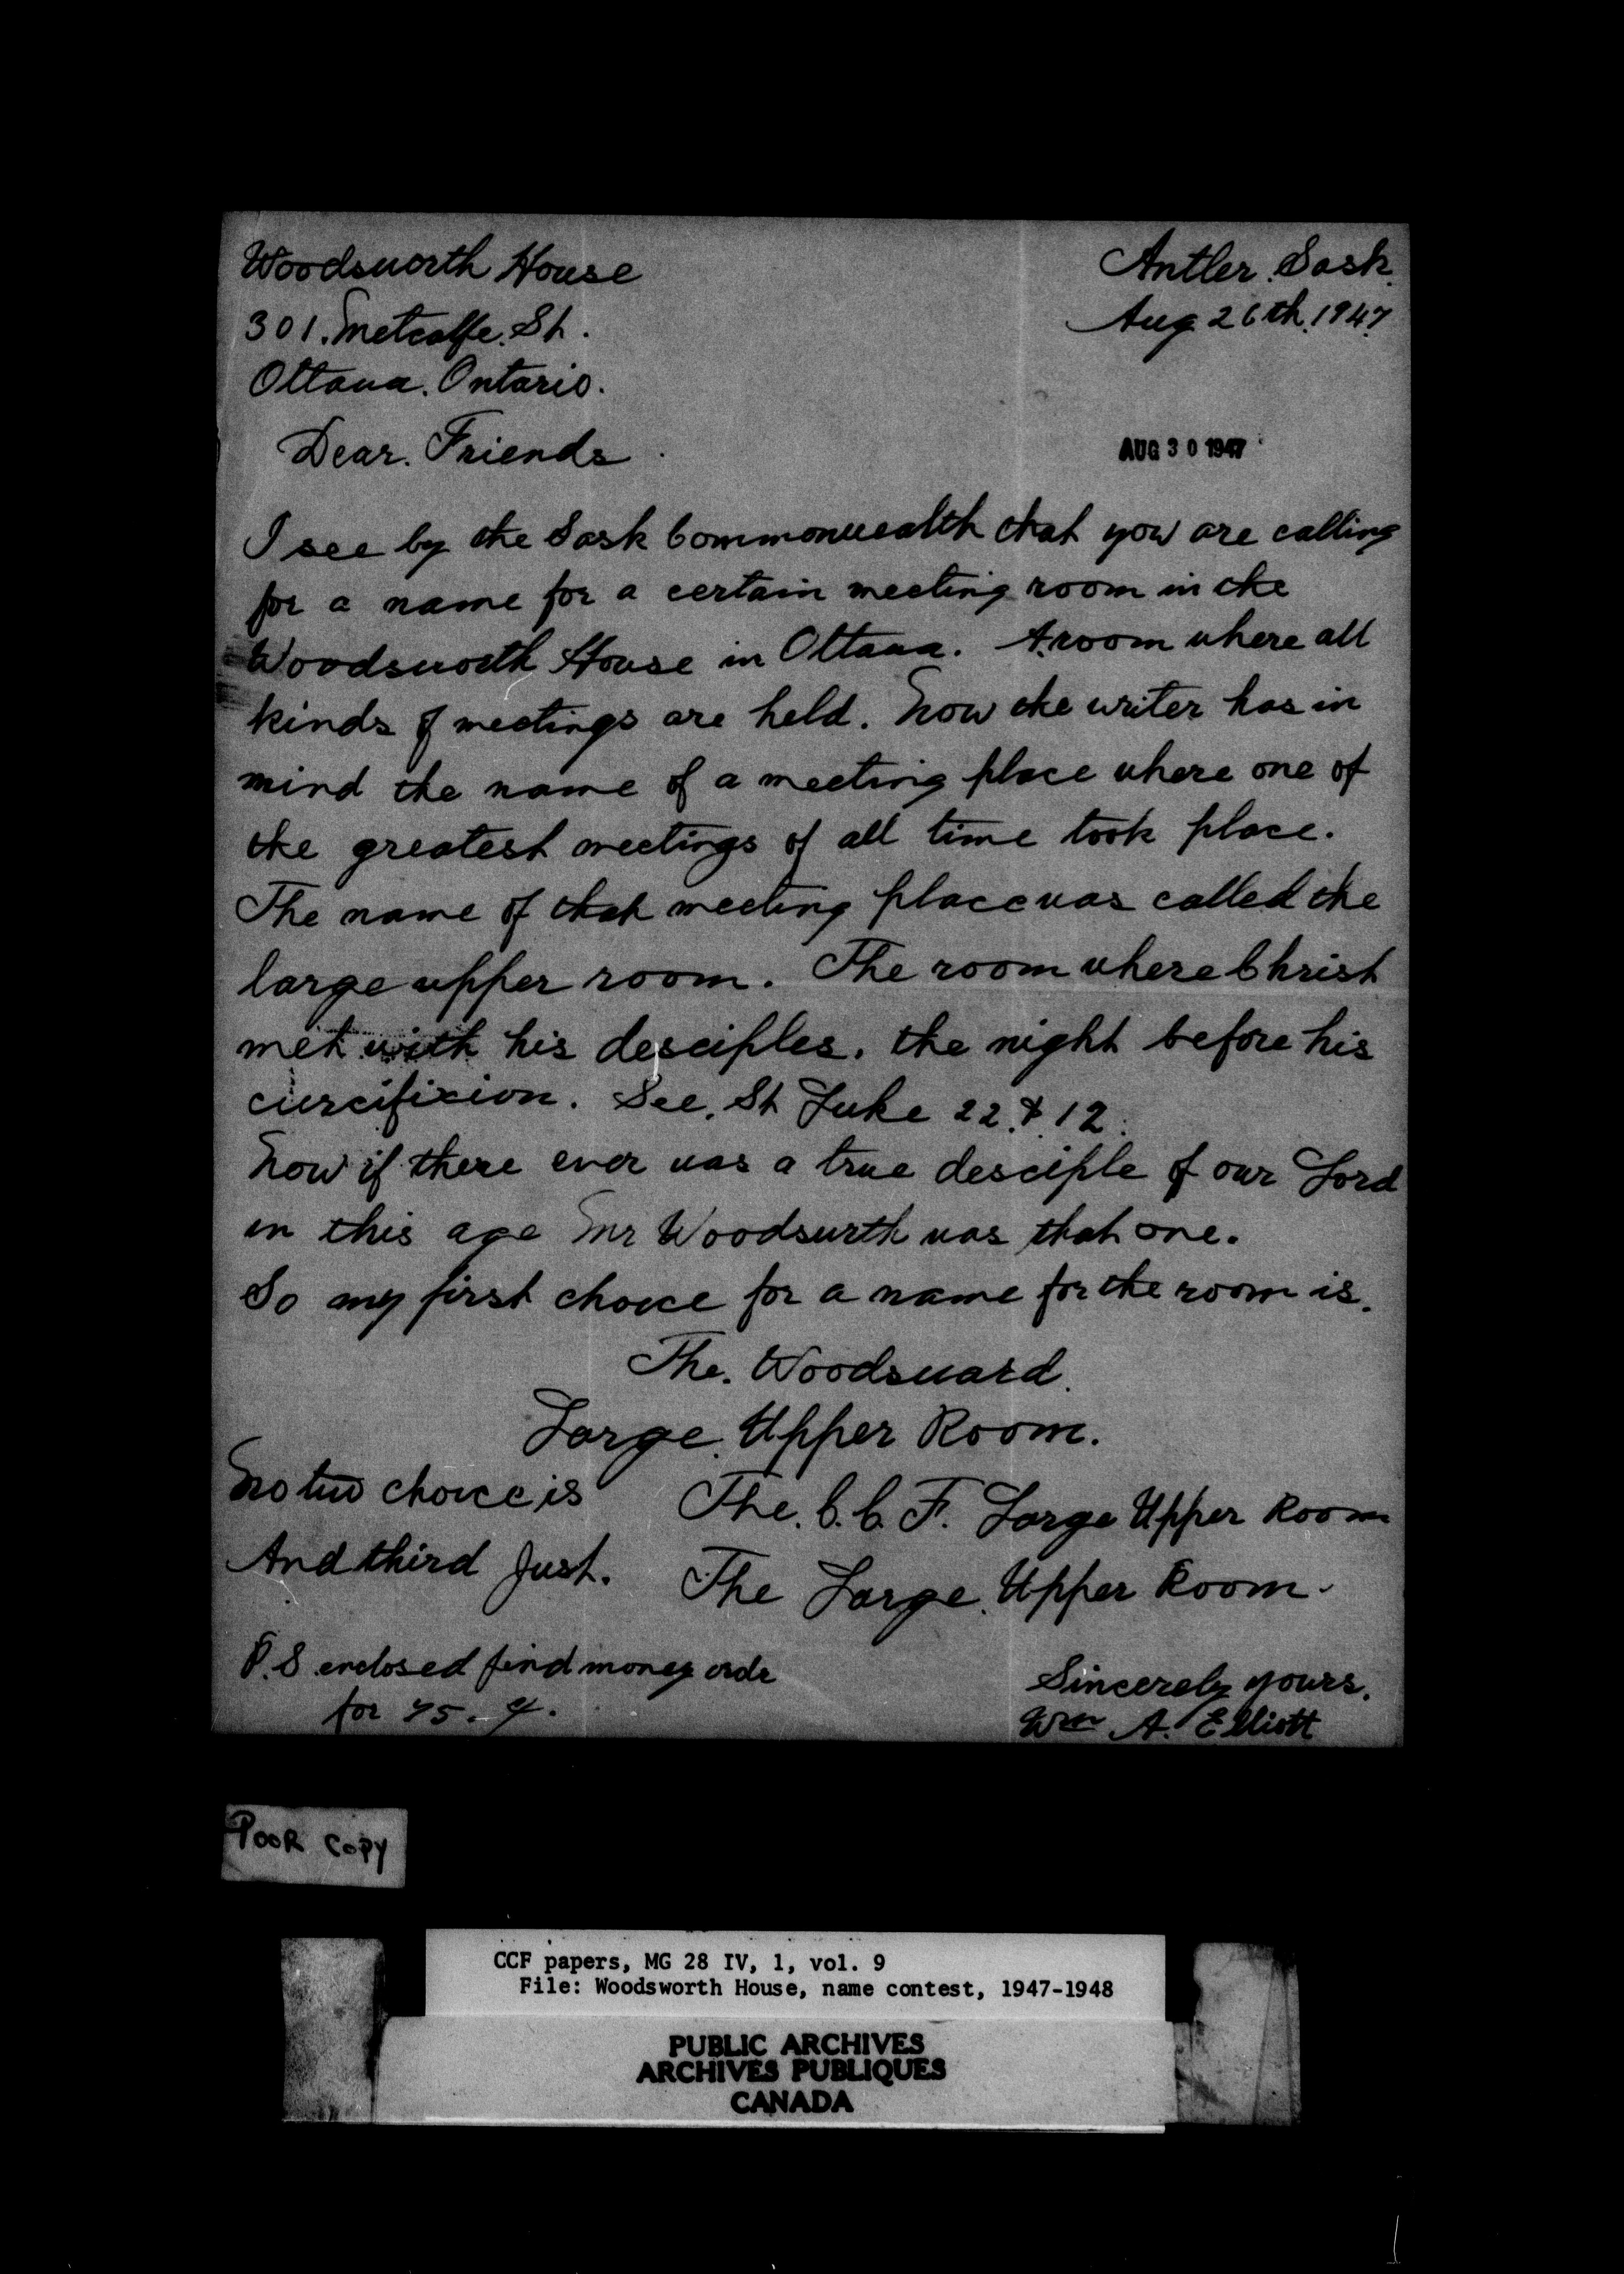 Woodsworth House
Antler. Sask.
301. Metcalfe. St.
Aug 26th. 1947
Ottawa. Ontario.
Dear. Friends
AUG 30 1947
I see by the Sask Commonwealth that you are calling
for a name for a certain meeting room in the
Woodsworth House in Ottawa. A room where all
kinds of meetings are held. Now the writer has in
mind the name of a meeting place where one of
the greatest meetings of all time took place.
The name of that meeting place was called the
large upper room. The room where Christ
met with his desciples. the night before his
curcifixion. See. St Luke 22. & 12.
Now if there ever was a true desciple of our Lord
in this age Mr Woodsurth was that one.
So my first choice for a name for the room is.
The. Woodsward.
Large. Upper Room.
No two choice is The. C. C. F. Large Upper Room
And third Just. The Large. Upper Room.
P.S enclosed find money orde
for 75. ¢.
Sincerely yours.
Wm A. Elliott
POOR COPY
CCF papers, MG 28 IV, 1, vol. 9
File: Woodsworth House, name contest, 1947-1948
PUBLIC ARCHIVES
ARCHIVES PUBLIQUES
CANADA